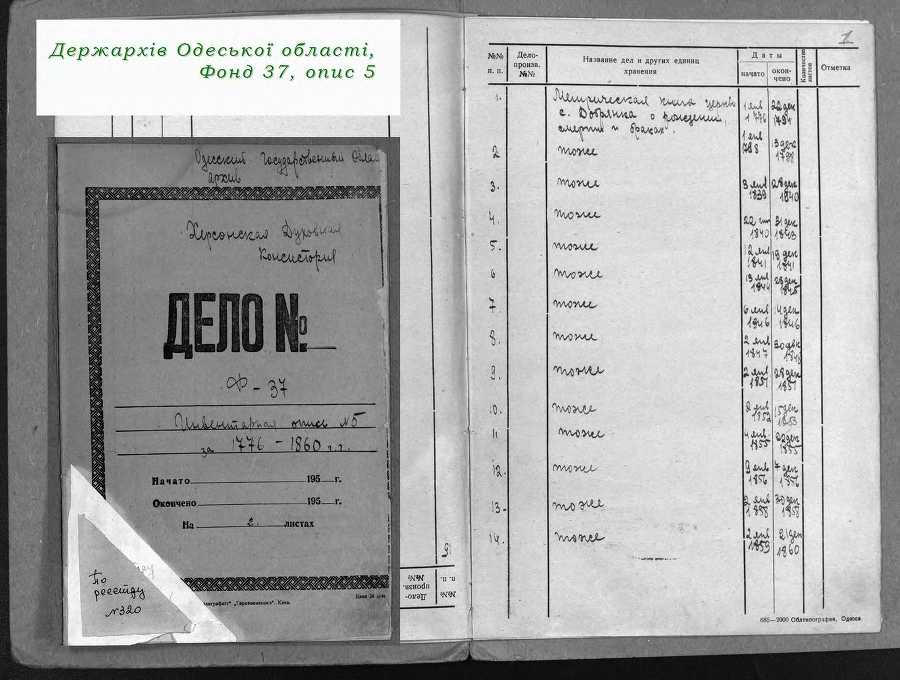 Держархів Одеської області,
Фонд 37, опис 5
Одесский Государственный
архив
Херсонская Духовная
Консистория
ДЕЛО №
Ф - 37
Инвентарная опись №5
за 1776 - 1860 г.г.
Начато 195 г.
Окончено 195 г.
На 2 листах
По
реестру
№320
1
№№ п. п.
Дело-произв. №№
Название дел и других единиц хранения
Даты
начато
окон-чено
Количество листов
Отметка
1. Метрическая книга церкви 1 янв 22 дек
с. Добрянка о рождении, 1776 1794
смерти и браках".
2 тоже 1 янв 788 3 дек
3. тоже 3 янв 1839 28 дек 1840
4. тоже 1840 31 дек 1843
5. тоже 12 янв 1841 19 дек 1841
6 тоже 28 дек
7 тоже 6 янв 1846 14 дек 1846
8. тоже 2 янв 1847 30 дек
9. тоже 2 янв 1851 28 дек 1851
10. тоже 2 янв 15 дек 1853
11 тоже 4 янв 1855 22 дек 1855
12. тоже 9 янв 1856 4 дек 1856
13. тоже 2 янв 1858 30 дек 1858
14. тоже 2 янв 1859 21 дек 1860
685—2000 Облполиграфия, Одесса